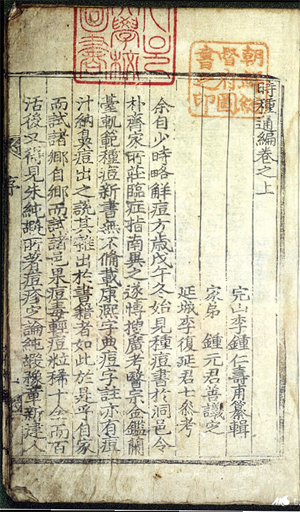 朝鮮總督府圖書之印
大學校圖書
時種通編卷之上
完山李鍾仁壽甫纂輯
家弟 鍾元君善議定
延城李復延君士叅考
余自少時略解痘方歲戊午冬始見種痘書於洞邑令
朴齊家所莊臨症指南異之遂博搜廣考醫宗金鑑蘭
臺軌範種痘新書無不備載康熙字典痘字註亦有痘
汁納鼻痘出之說其雜出於書籍者如此於是乎自家
而試諸鄉自鄉而試諸邑果痘毒輕痘粒稀十全而百
活後又得見朱純嘏所著痘疹定論純嘏豫章新建人
序